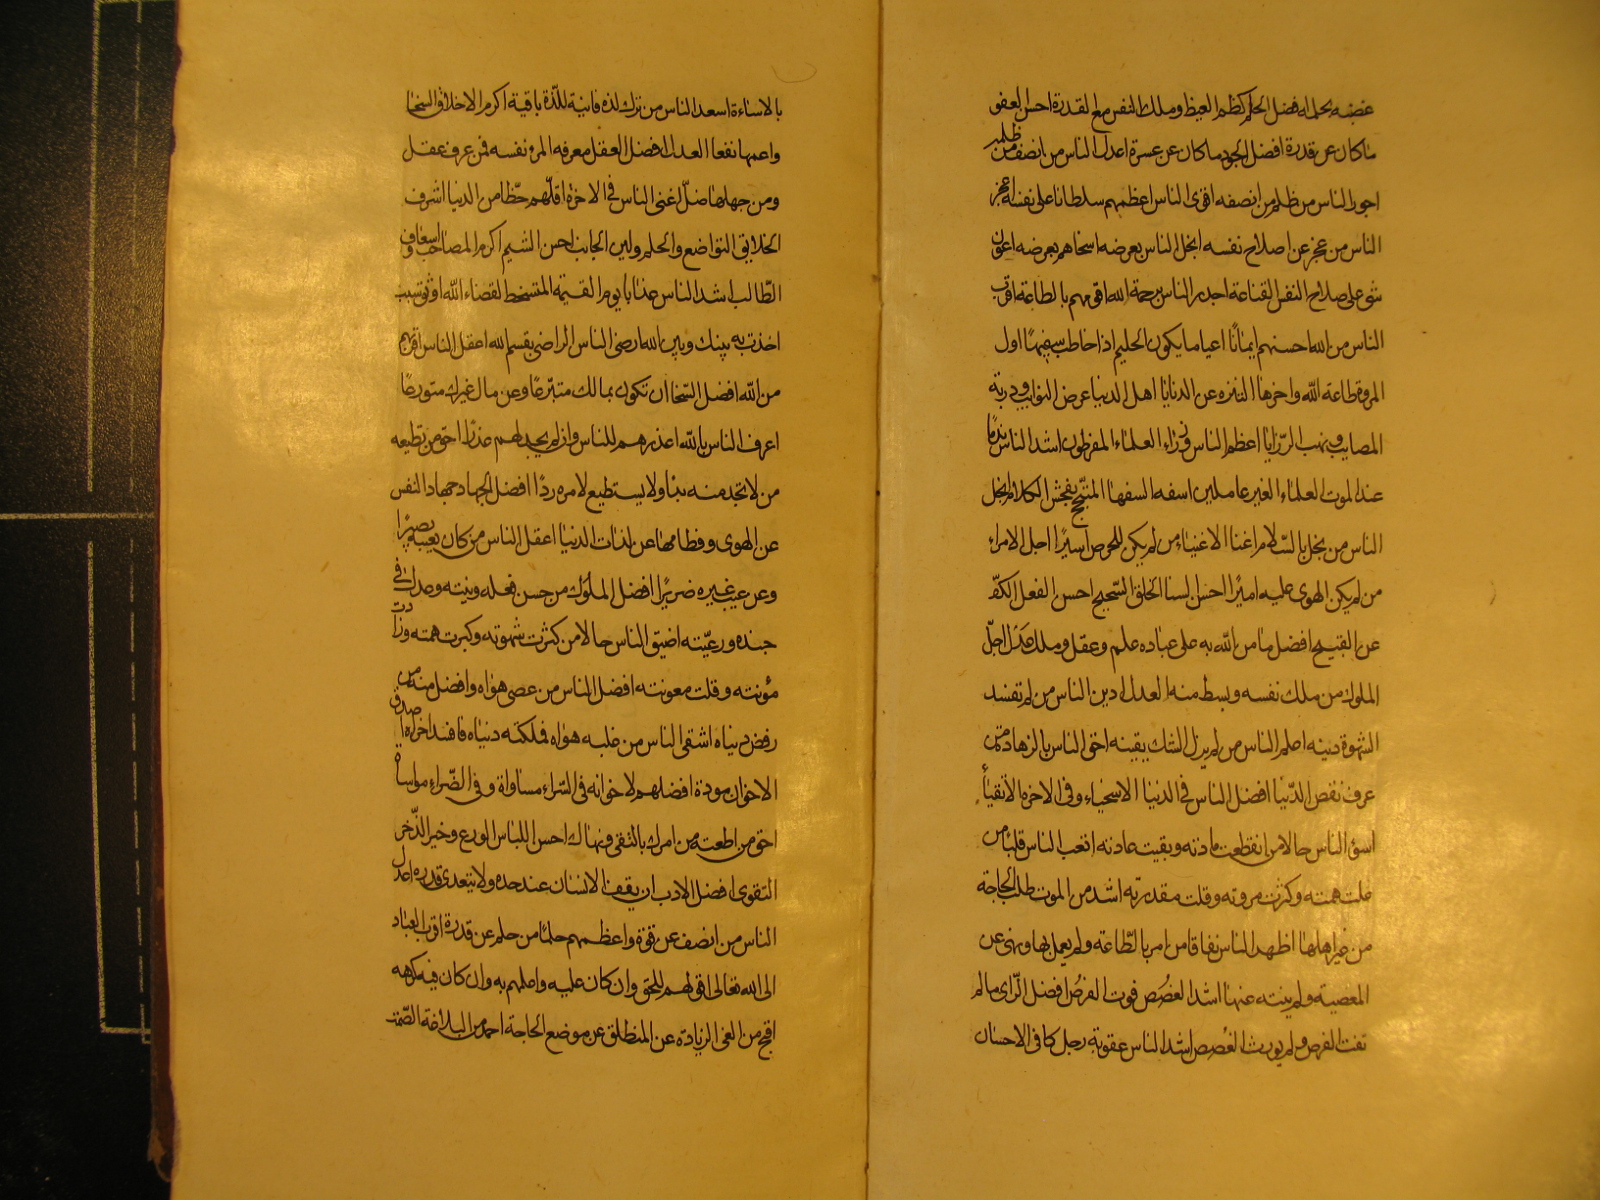 غضبه بحلمه افضل الحلم كظم الغيظ وملك النفس مع القدرة احسن العفو
ماكان عن قدرة افضل الجود ماكان عن عسرة اعدل الناس من انصف من ظلمه
اجور الناس من ظلم من انصفه اقوى الناس اعظمهم سلطانا على نفسه اعجز
الناس من عجز عن اصلاح نفسه ابخل الناس بعرضه اسخاهم بعرضه اعون
شى على صلاح النفس القناعة اجدر الناس برحمة الله اقومهم بالطاعة اقرب
الناس من الله احسنهم ايمانًا اعيا ما يكون الحليم اذا خاطب سفيهًا اول
المروة طاعة الله واخرها التنزه عن الدنايا اهل الدنيا عرض النوايب ودرية
المصايب ونهب الرّزايا اعظم الناس وزراء العلماء المفرطون اشد الناس ندمًا
عند الموت العلماء الغير عاملين اسفه السفها المتبجح بفحش الكلام ابخل
الناس من بخل بالسّلام اغنا الاغنياء من لم يكن للحرص اسيرًا اجل الامراء
من لم يكن الهوى عليه اميرًا احسن السنا الخلق السّجيح احسن الفعل الكفّ
عن القبيح افضل ما من الله به على عباده علم وعقل وملك عدل اجلّ
الملوك من ملك نفسه وبسط منه العدل ادين الناس من لم تفسد
الشهوة دينه اعلم الناس من لم يزل الشك يقينه احق الناس بالزهادة من
عرف نقص الدّنيا افضل الناس فى الدنيا الاسخياء وفى الاخرة الاتقيأ
اسؤ الناس حالا من انقطعت مادته وبقيت عادته اتعب الناس قلبًا من
علت همته وكثرت مروته وقلت مقدرته اشد من الموت طلب الحاجة
من غير اهلها اظهر الناس نفاقا من امر بالطّاعة ولم يعمل بها ونهى عن
المعصية ولم ينته عنها اشد الغصص فوت الفرص افضل الرّاى مالم
تفت الفرص ولم يورث الغصص اشد الناس عقوبة رجل كافى الاحسان
بالاساءة اسعد الناس من ترك لذه فانية للذّة باقية اكرم الاخلاق السخا
واعمها نفعا العدل افضل العقل معرفه المرء نفسه فمن عرف عقل
ومن جهلها ضلّ اغنى الناس فى الاخرة اقلّهم حظّا من الدنيا اشرف
الخلايق التواضع والحلم ولين الجانب احسن الشيم اكرام المصاحب واسعاف
الطّالب اشد الناس عذابا يوم القيمة المتسخط لقضاء الله اوثق سبب
اخذت به بينك وبين الله ارضى الناس الراضى بقسم الله اعقل الناس اقربهم
من الله افضل السّخا ان تكون بمالك متبرّعًا وعن مال غيرك متورعًا
اعرف الناس بالله اعذرهم للناس وان لم يجد لهم عذرًا احق من تطيعه
من لا تجد منه بدًا ولا يستطيع لامره ردًا افضل الجهاد جهاد النفس
عن الهوى وفطامها عن لذات الدنيا اعقل الناس من كان بعيبه بصيرًا
وعن عيب غيره ضريرًا افضل الملوك من حسن فعله ونيته وعدل فى
جنده ورعيّته اضيق الناس حالا من كثرت شهوته وكبرت همته وزادت
مؤنته وقلت معونته افضل الناس من عصى هواه وافضل منه من
رفض دنياه اشقى الناس من غلبه هواه فملكته دنياه فافسد اخراه اصدق
الاخوان مودة افضلهم لاخوانه فى السّراء مساواة وفى الضّراء مواساة
احق من اطعته من امرك بالتقى ونهاك احسن اللباس الورع وخير الذّخر
التقوى افضل الادب ان يقف الانسان عند حده ولا يتعدى قدره اعدل
الناس من انصف عن قوة واعظمهم حلمًا من حلم عن قدرة اقرب العباد
الى الله تعالى اقولهم للحق وان كان عليه واعملهم به وان كان فيه كرهه
اقبح من العى الزيادة عن المنطلق عن موضع الحاجة احمد من البلاغة الصّمت